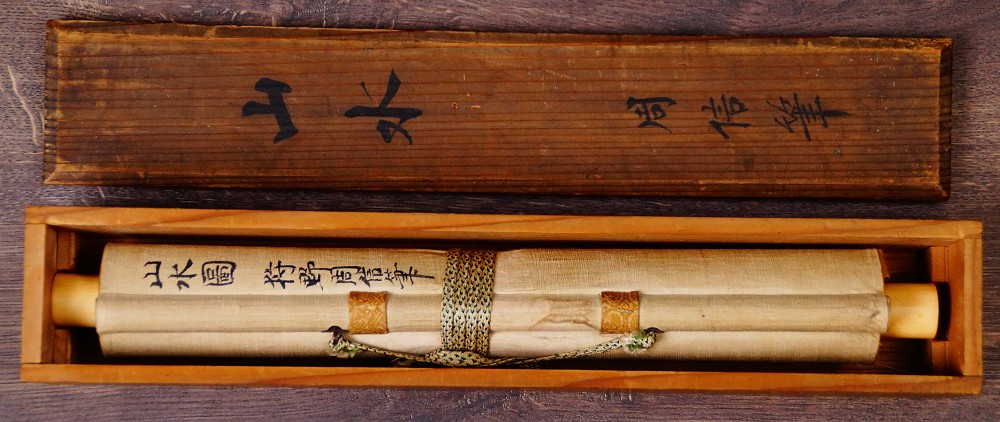 山水 周信筆
山水圖 狩野周信筆